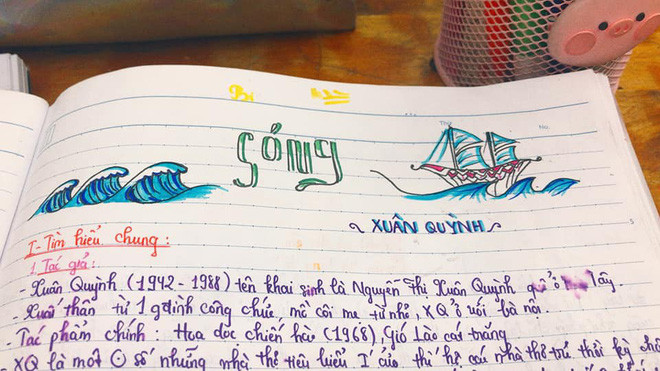 Sóng
~ XUÂN QUỲNH ~
I - Tìm hiểu chung :
1. Tác giả :
- Xuân Quỳnh (1942 - 1988) tên khai sinh là Nguyễn Thị Xuân Quỳnh quê ở Tây
- Xuất thân từ 1 gđình công chức, mồ côi mẹ từ nhỏ, XQ ở với bà nội.
- Tác phẩm chính : Hoa dọc chiến hào (1968), Gió Lào cát trắng
- XQ là một số những nhà thơ tiêu biểu I của thế hệ các nhà thơ trẻ thời kỳ